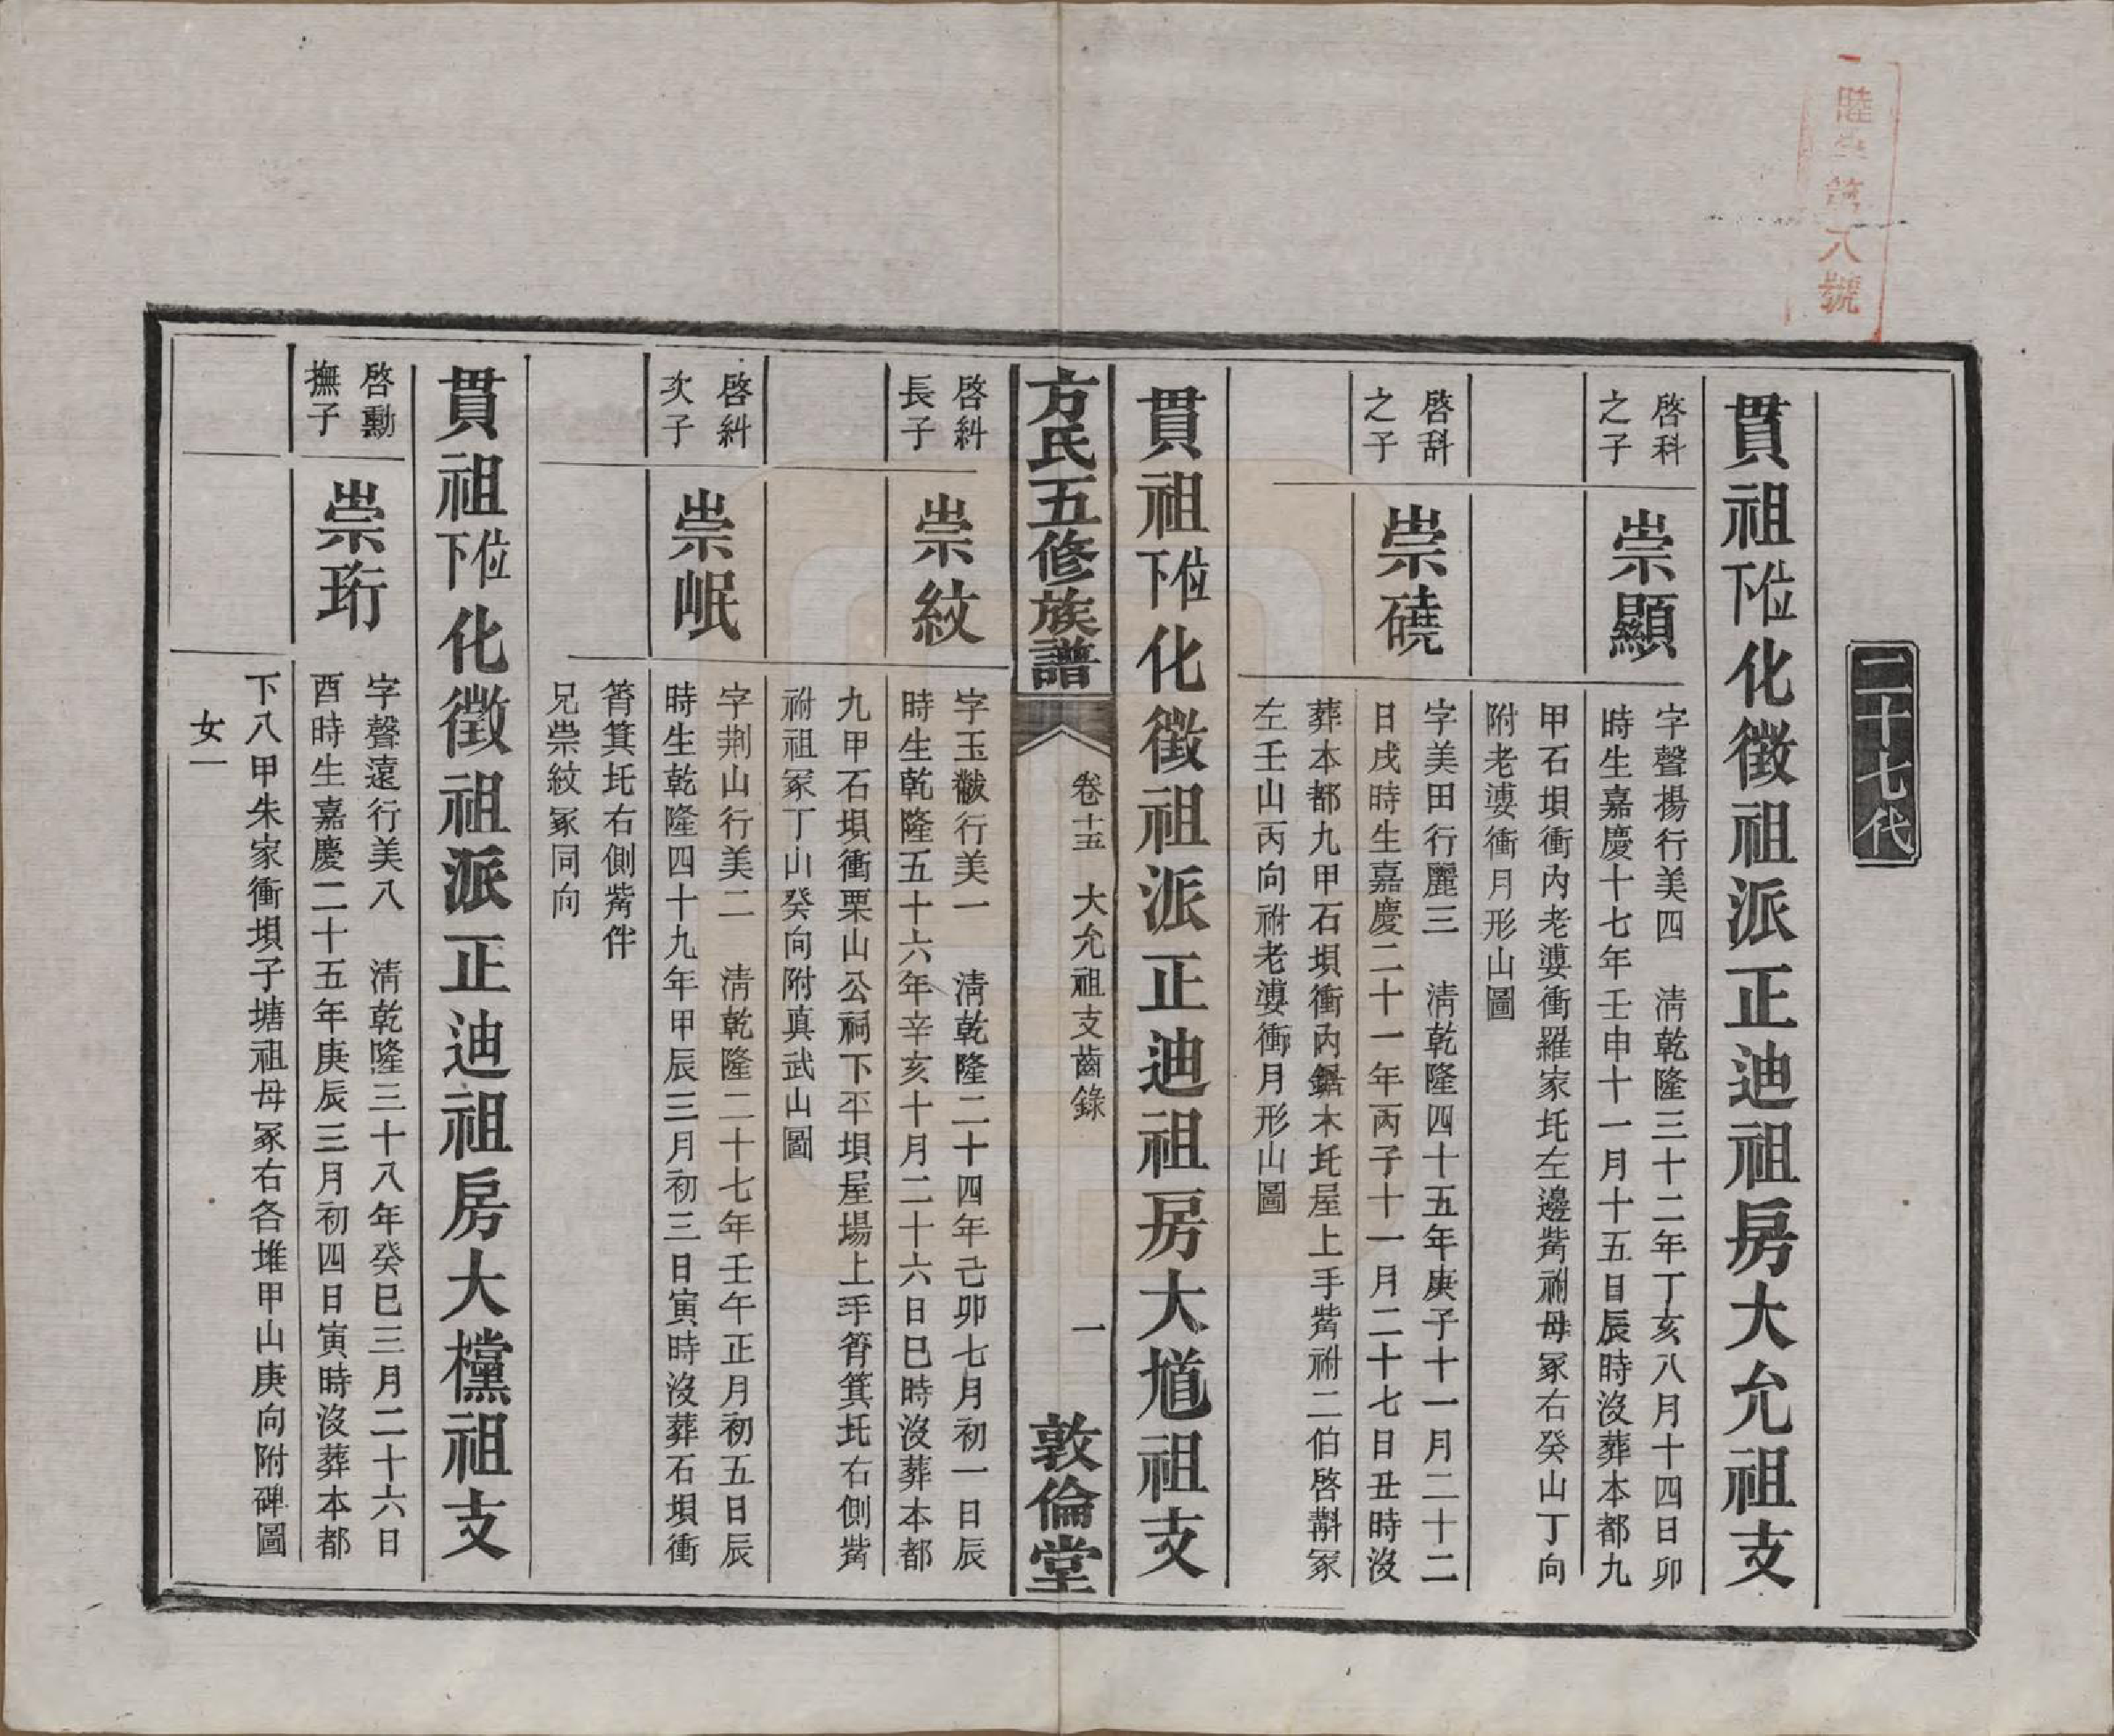 二十七代
貫祖位下化徵祖派正迪祖房大允祖支
啓科之子
崇顯
字聲揚行美四　淸乾隆三十二年丁亥八月十四日卯
時生嘉慶十七年壬申十一月十五日辰時沒葬本都九
甲石垻衝內老婆衝羅家坵左邊觜祔母冢右癸山丁向
附老婆衝月形山圖
啓㪵之子
崇磽
字美田行麗三　淸乾隆四十五年庚子十一月二十二
日戌時生嘉慶二十一年丙子十一月二十七日丑時沒
葬本都九甲石垻衝內鋸木坵屋上手觜祔二伯啓斠冢
左壬山丙向祔老婆衝月形山圖
貫祖位下化徵祖派正迪祖房大馗祖支
方氏五修族譜
卷十五　大允祖支齒錄
一
敦倫堂
啓糾長子
崇紋
字玉黻行美一　淸乾隆二十四年己卯七月初一日辰
時生乾隆五十六年辛亥十月二十六日巳時沒葬本都
九甲石垻衝栗山公祠下平垻屋場上手筲箕坵右側觜
祔祖冢丁山癸向附真武山圖
啓糾次子
崇岷
字荆山行美二　淸乾隆二十七年壬午正月初五日辰
時生乾隆四十九年甲辰三月初三日寅時沒葬石垻衝
筲箕坵右側觜伴
兄崇紋冢同向
貫祖位下化徵祖派正迪祖房大欓祖支
啓勳撫子
崇珩
字聲遠行美八　淸乾隆三十八年癸巳三月二十六日
酉時生嘉慶二十五年庚辰三月初四日寅時沒葬本都
下八甲朱家衝垻子塘祖母冢右各堆甲山庚向附碑圖
女一
八號